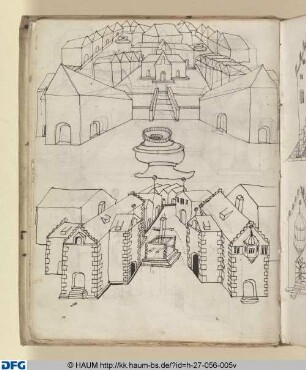 DFG © HAUM http://kk.haum-bs.de/?id=h-27-056-005v